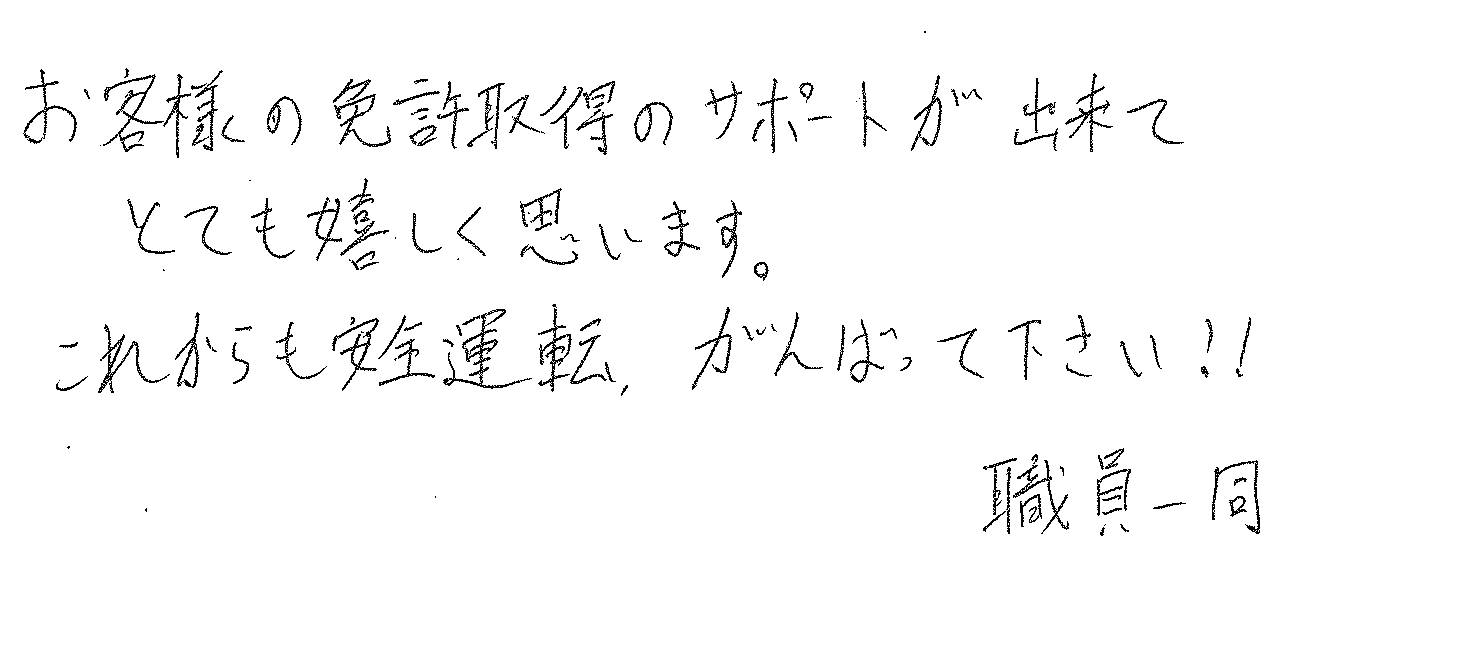 お客様の免許取得のサポートが出来て
とても嬉しく思います。
これからも安全運転、がんばって下さい!!
職員一同